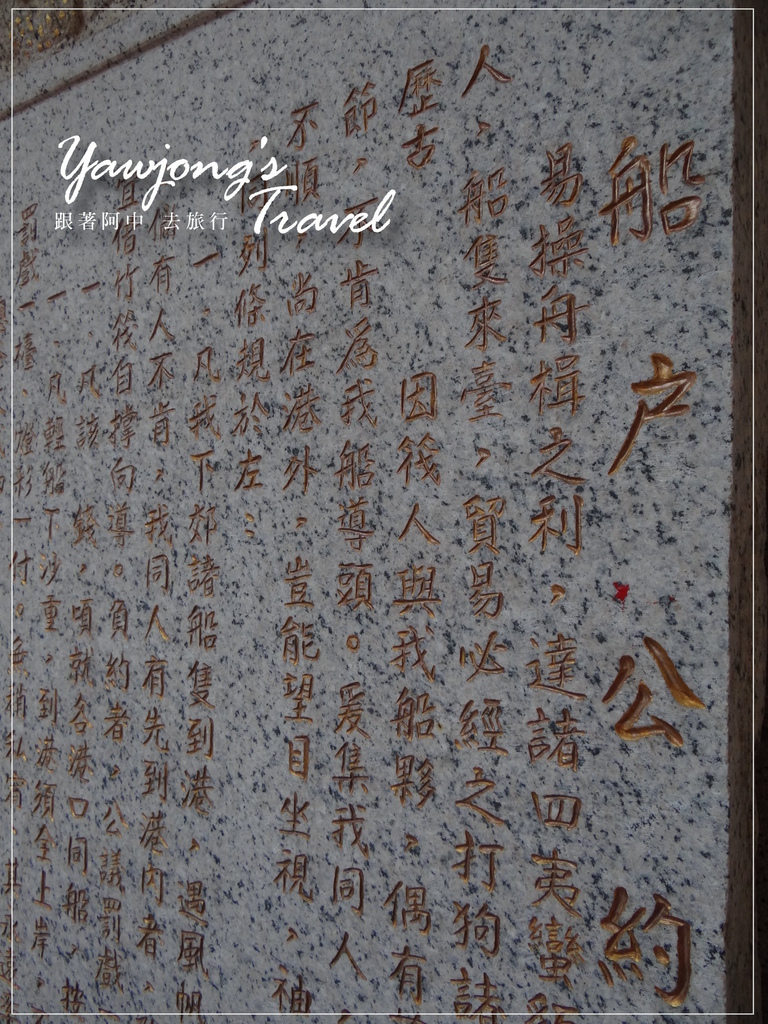 Yawjong's
Travel
跟著阿中 去旅行
船戶公約
易操舟楫之利，達諸四夷蠻
人，船隻來臺，貿易必經之打狗諸
歷古 因筏人與我船夥，偶有
節，不肯為我船導頭。爰集我同人
不順，尚在港外，豈能望目坐視，神
列條規於左：
一、凡我下郊諸船隻到港，遇風帆
有人不肯，我同人有先到港內者，
竹筏自撐向導。負約者，公議罰戲
一、凡該 錢，頃就各港口同船，按
一、凡輕船下沙重，到港須全上岸，
罰戲一檯、燈彩一付。